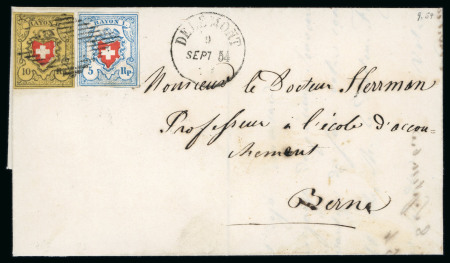 9.54
RAYON
10
RAYON
5 Rp
DELEMONT
9
SEPT 54
Monsieur le Docteur Herrman
Professeur à l'école d'accou-
chement
Berne